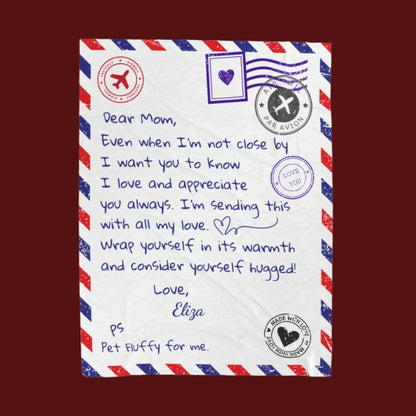 AIR MAIL
PAR AVION
Dear Mom,
Even when I'm not close by
I want you to know
I love and appreciate
you always. I'm sending this
with all my love.
Wrap yourself in its warmth
and consider yourself hugged!
LOVE
YOU
Love,
Eliza
PS
Pet Fluffy for me.
MADE WITH LOVE
MADE WITH LOVE